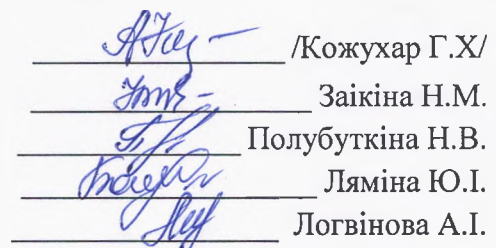 /Кожухар Г.Х/
Заікіна Н.М.
Полубуткіна Н.В.
Ляміна Ю.І.
Логвінова А.І.